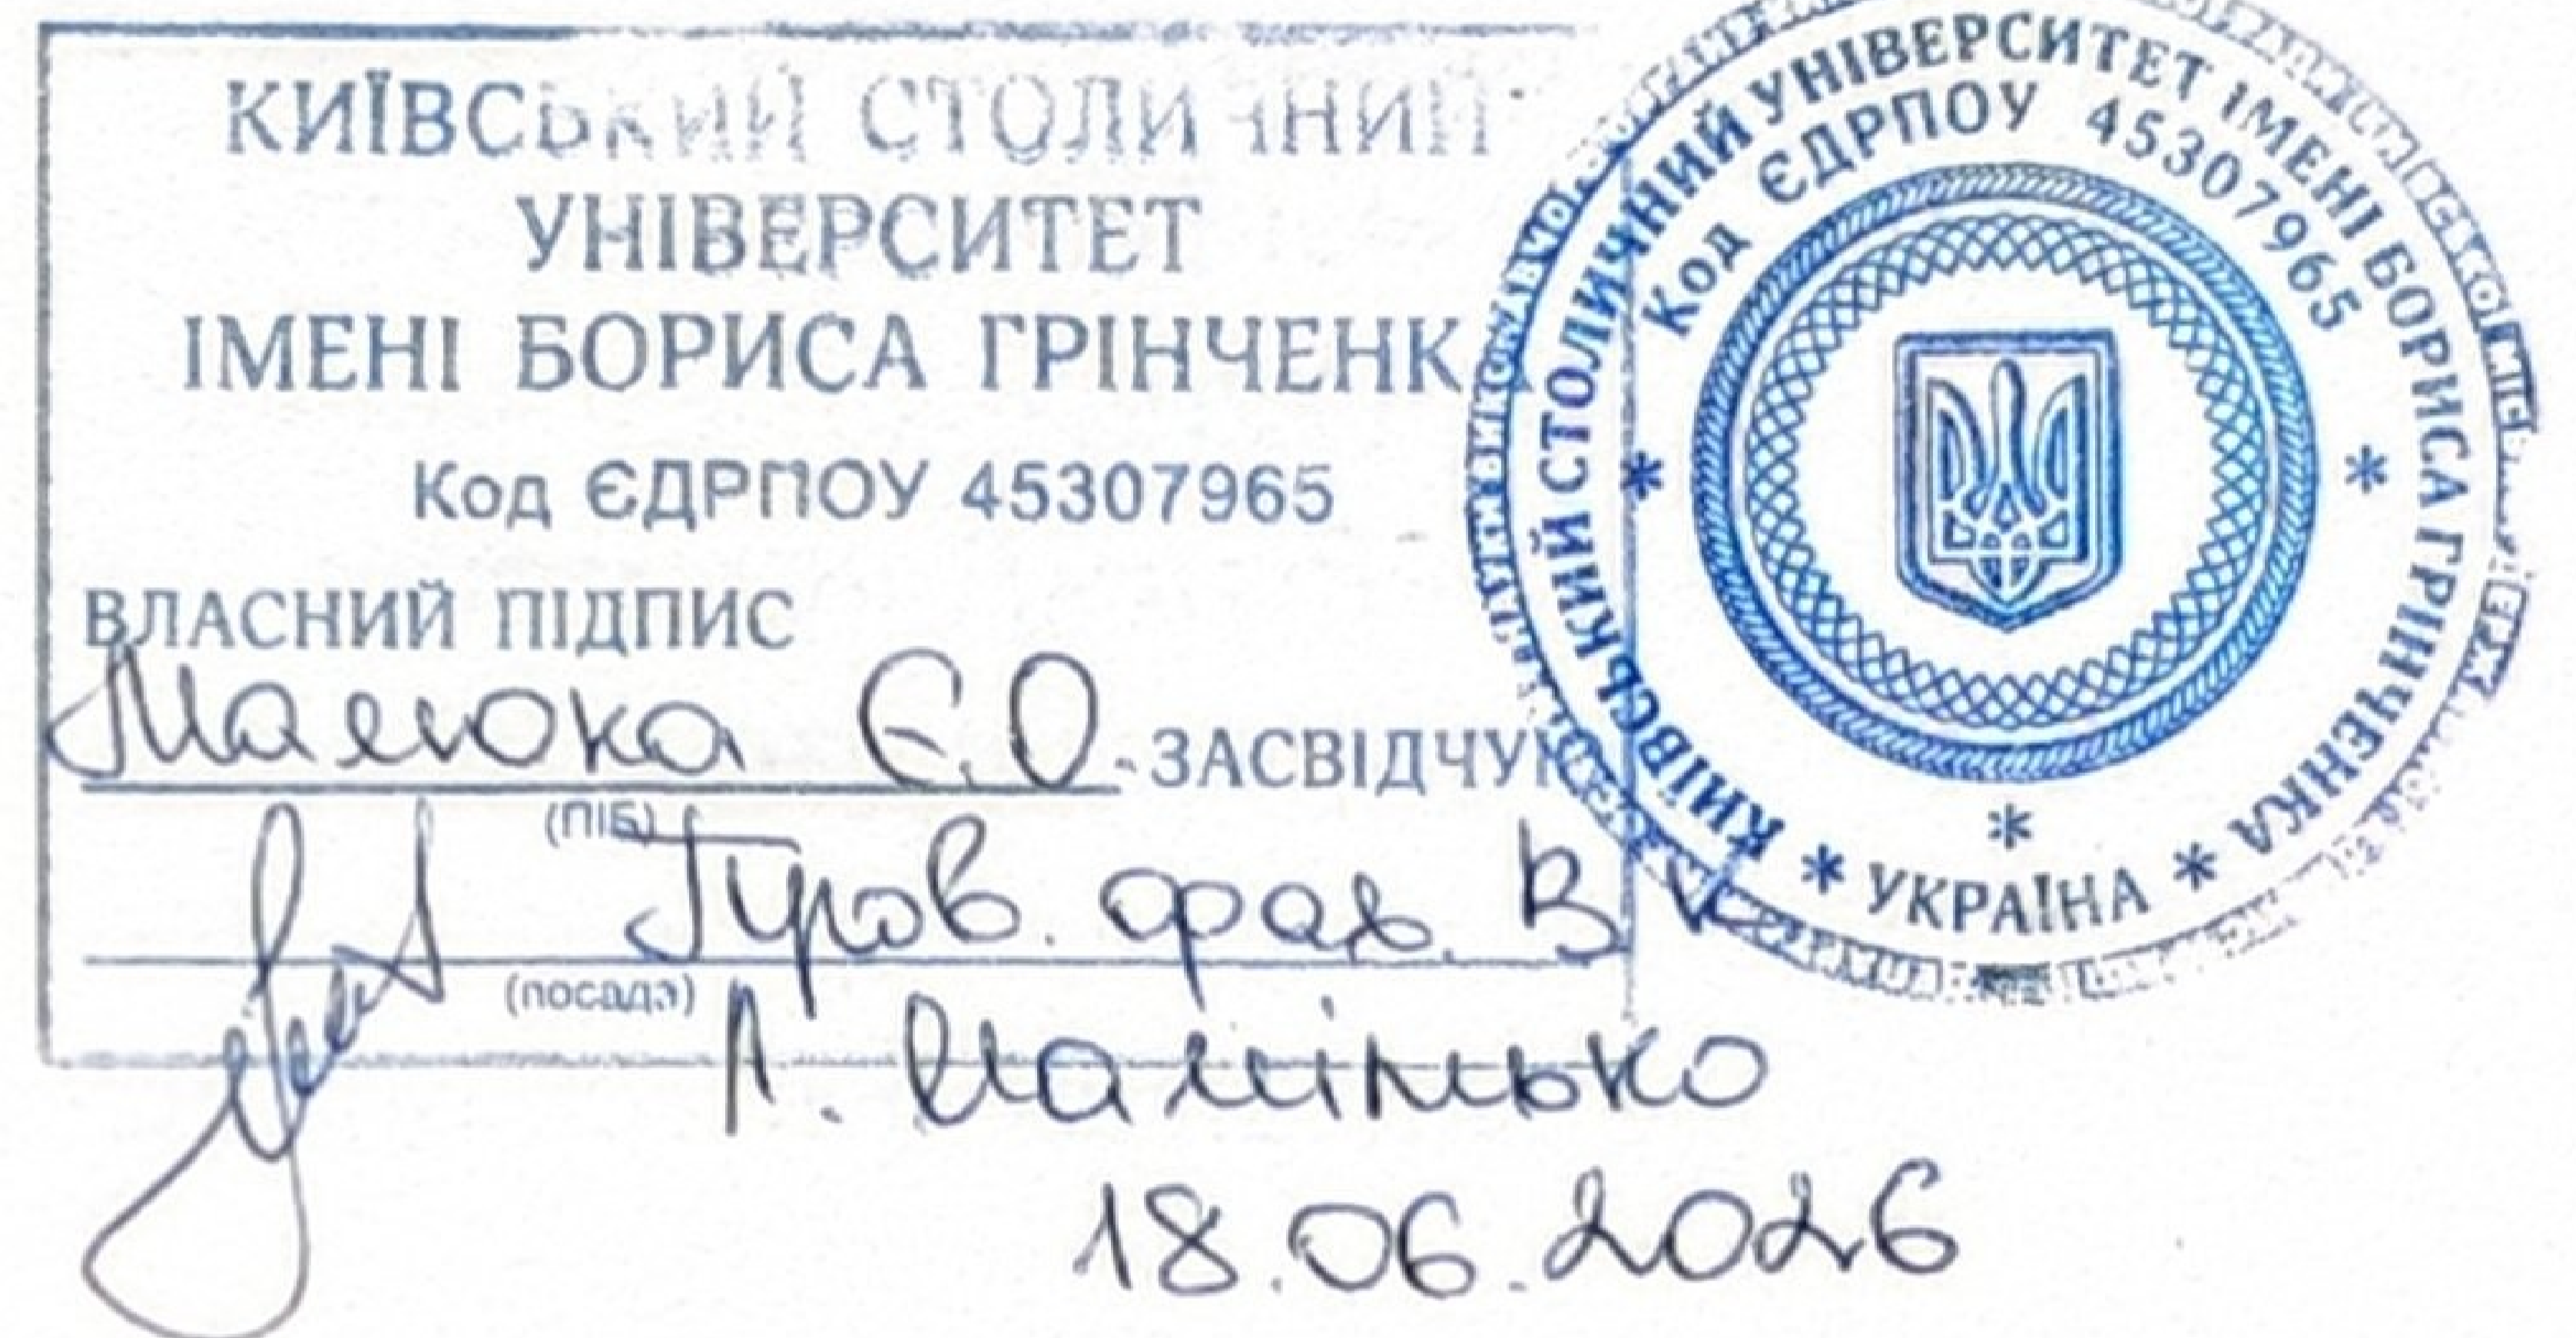 КИЇВСЬКИЙ СТОЛИЧНИЙ
УНІВЕРСИТЕТ
ІМЕНІ БОРИСА ГРІНЧЕНКА
Код ЄДРПОУ 45307965
ВЛАСНИЙ ПІДПИС
Малюка Є.О. ЗАСВІДЧУЮ
(ПІБ)
Пров. фах. В
(посада)
Л.
18.06.2026
КИЇВСЬКИЙ СТОЛИЧНИЙ УНІВЕРСИТЕТ ІМЕНІ БОРИСА ГРІНЧЕНКА
Код ЄДРПОУ 45307965
* УКРАЇНА *